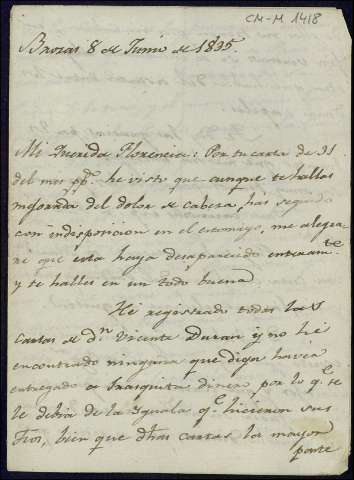 CM-M 1418
Brozas 8 de Junio de 1835.
Mi Querida Florencia: Por tu carta de 31
del mes pp.º he visto que aunque te hallas
mejorada del dolor de cabeza, has seguido
con indisposicion en el estomago, me alegra-
ré que esta haya desaparecido enteram.te
y te halles en un todo buena
He registrado todas las
cartas de d.n Vicente Duran y no hé
encontrado ninguna que diga havia
entregado a Frasquita dinero por lo q.e
le debia de la Yguala q.e hicieron sus
Tios, bien que dhas cartas la mayor
parte